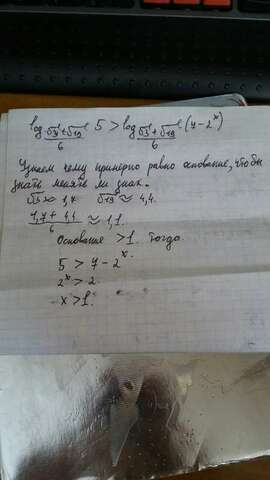 log_{\frac{√3+√19}{6}} 5 > log_{\frac{√3+√19}{6}} (7-2^x)
Узнаем чему примерно равно основание, чтобы
знать менять ли знак.
√3 ≈ 1,7 √19 ≈ 4,4.
\frac{1,7+4,4}{6} ≈ 1,1.
Основание >1. тогда
5 > 7-2^x.
2^x > 2
x > 1.